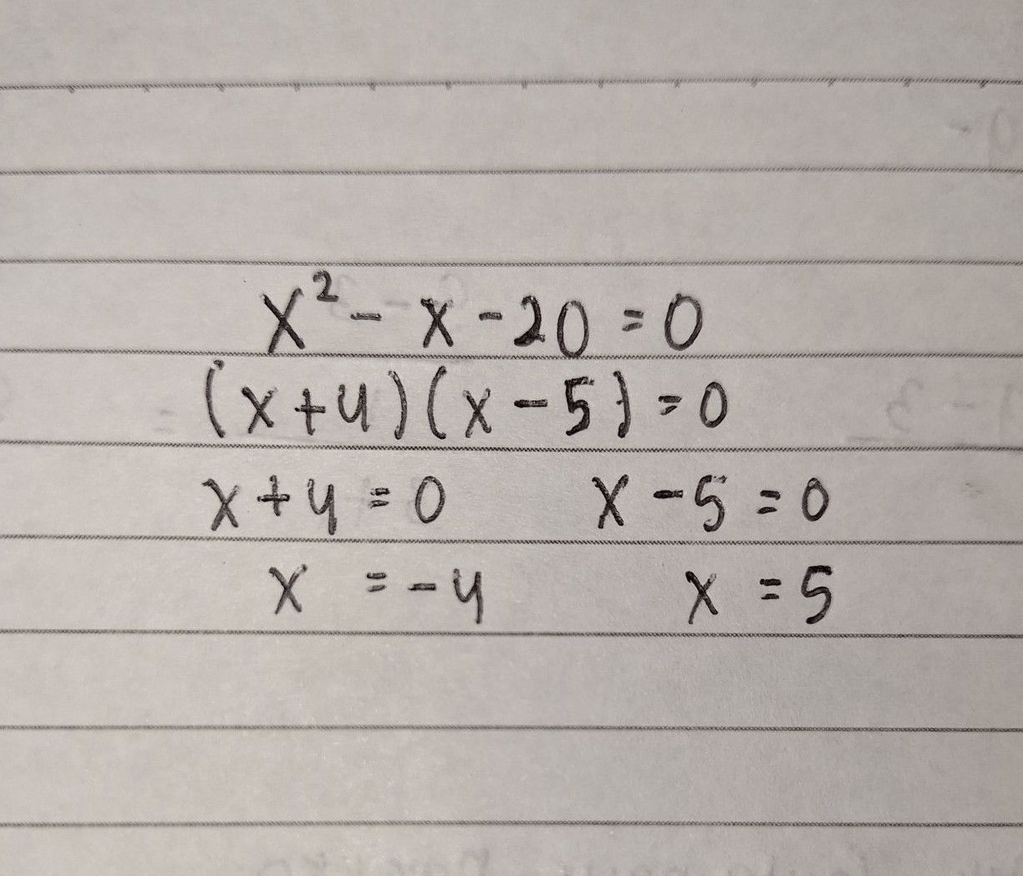 x² - x - 20 = 0
(x + 4)(x - 5) = 0
x + 4 = 0 x - 5 = 0
x = -4 x = 5